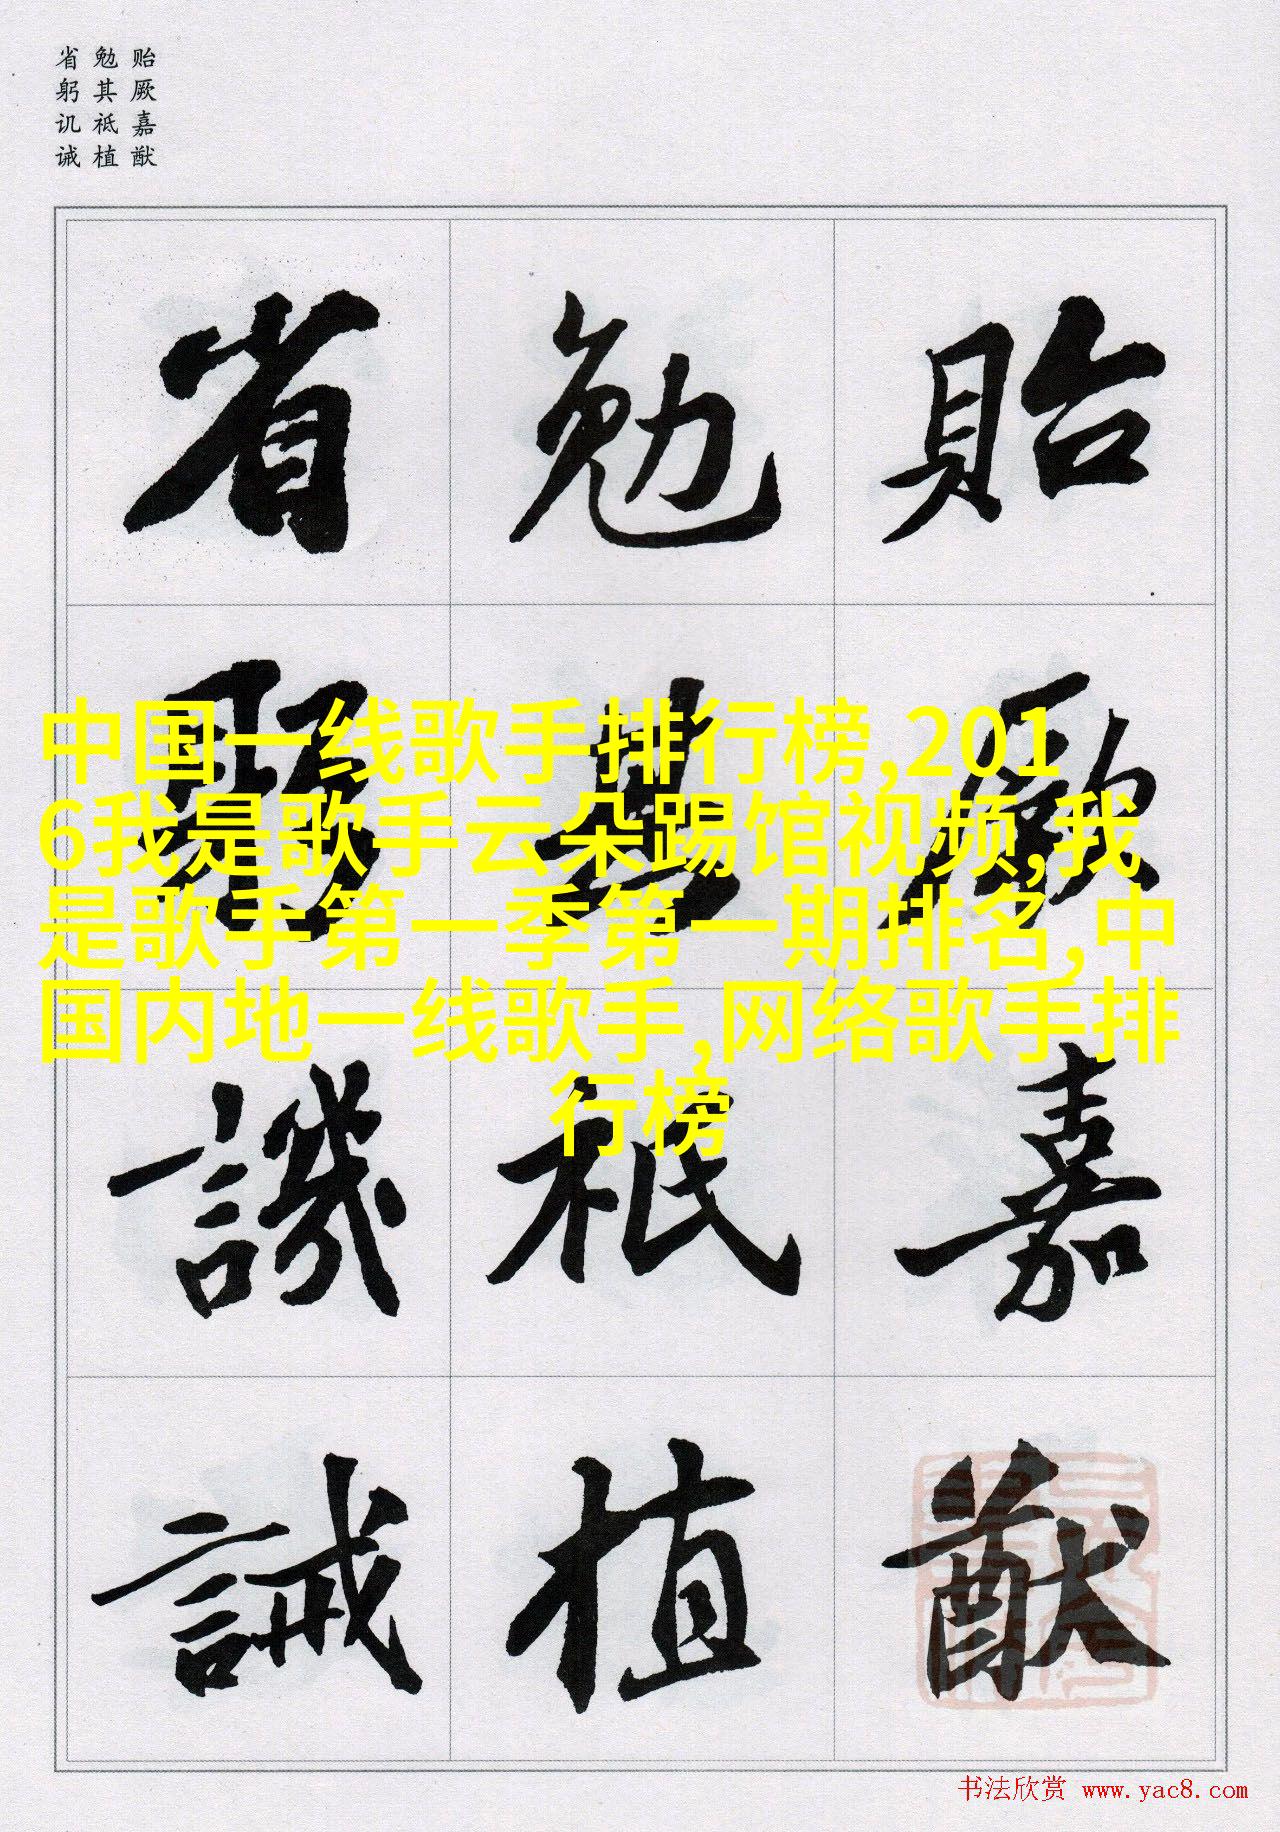 贻厥嘉猷
勉其祗植
省躬讥诫
貽厥嘉猷
勉其祗植
省躬譏誡
中国一线歌手排行榜,201
6我是歌手云朵踢馆视频,我
是歌手第一季第一期排名,中
国内地一线歌手,网络歌手排
行榜
书法欣赏 www.yac8.com